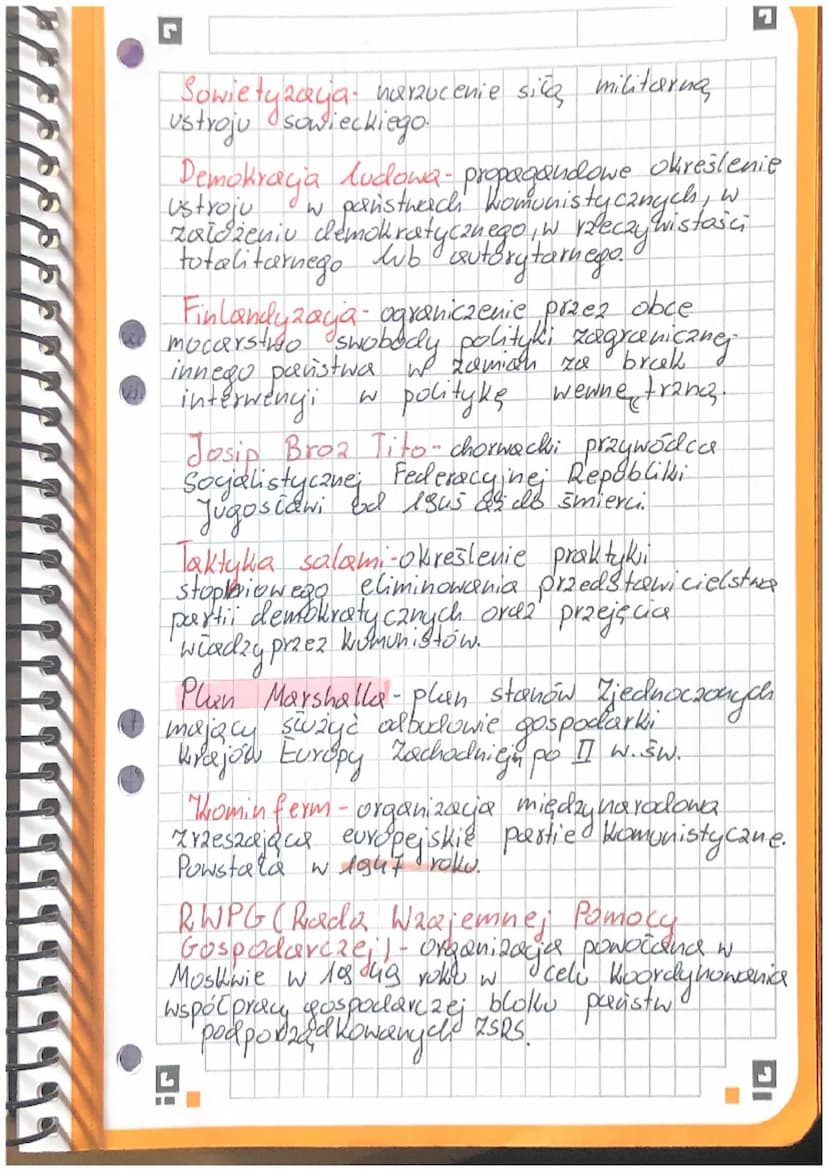 Sowietyzacja- narzucenie siłą militarną
ustroju sowieckiego.
Demokracja ludowa- propagandowe określenie
ustroju w państwach komunistycznych, w
założeniu demokratycznego, w rzeczywistości
totalitarnego lub autorytarnego.
Finlandyzacja- ograniczenie przez obce
mocarstwo swobody polityki zagranicznej
innego państwa w zamian za brak
interwencji w politykę wewnętrzną.
Josip Broz Tito- chorwacki przywódca
Socjalistycznej Federacyjnej Republiki
Jugosławi od 1945 aż do śmierci.
Taktyka salami- określenie praktyki
stopniowego eliminowania przedstawicielstwa
partii demokratycznych oraz przejęcia
władzy przez komunistów.
Plan Marshalla- plan stanów Zjednoczonych
mający służyć odbudowie gospodarki
krajów Europy Zachodniej po II w.św.
Kominferm- organizacja międzynarodowa
zrzeszająca europejskie partie komunistyczne.
Powstała w 1947 roku.
RWPG (Rada Wzajemnej Pomocy
Gospodarczej)- organizacja powołana w
Moskwie w 1949 roku w celu koordynowania
współpracy gospodarczej bloku państw
podporządkowanych ZSRS.